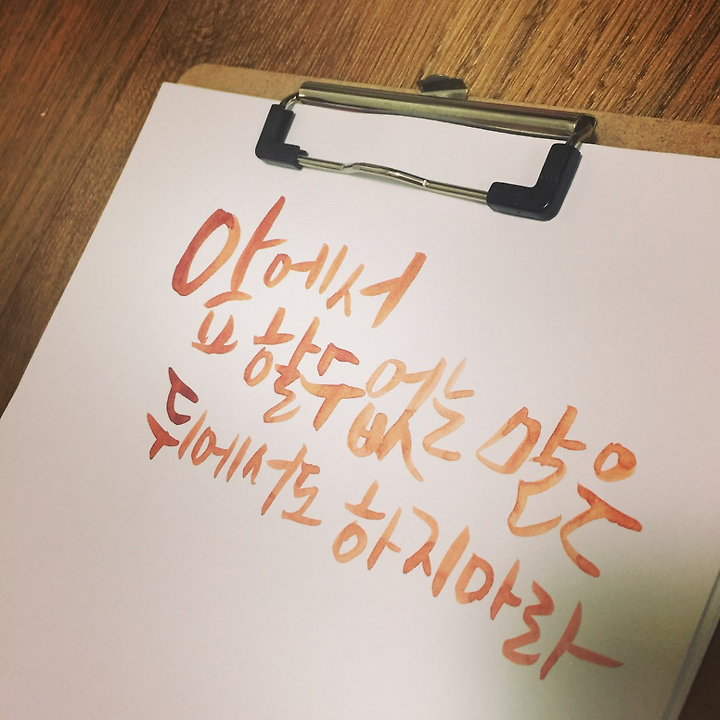 앞에서
할수없는 말은
뒤에서도 하지마라